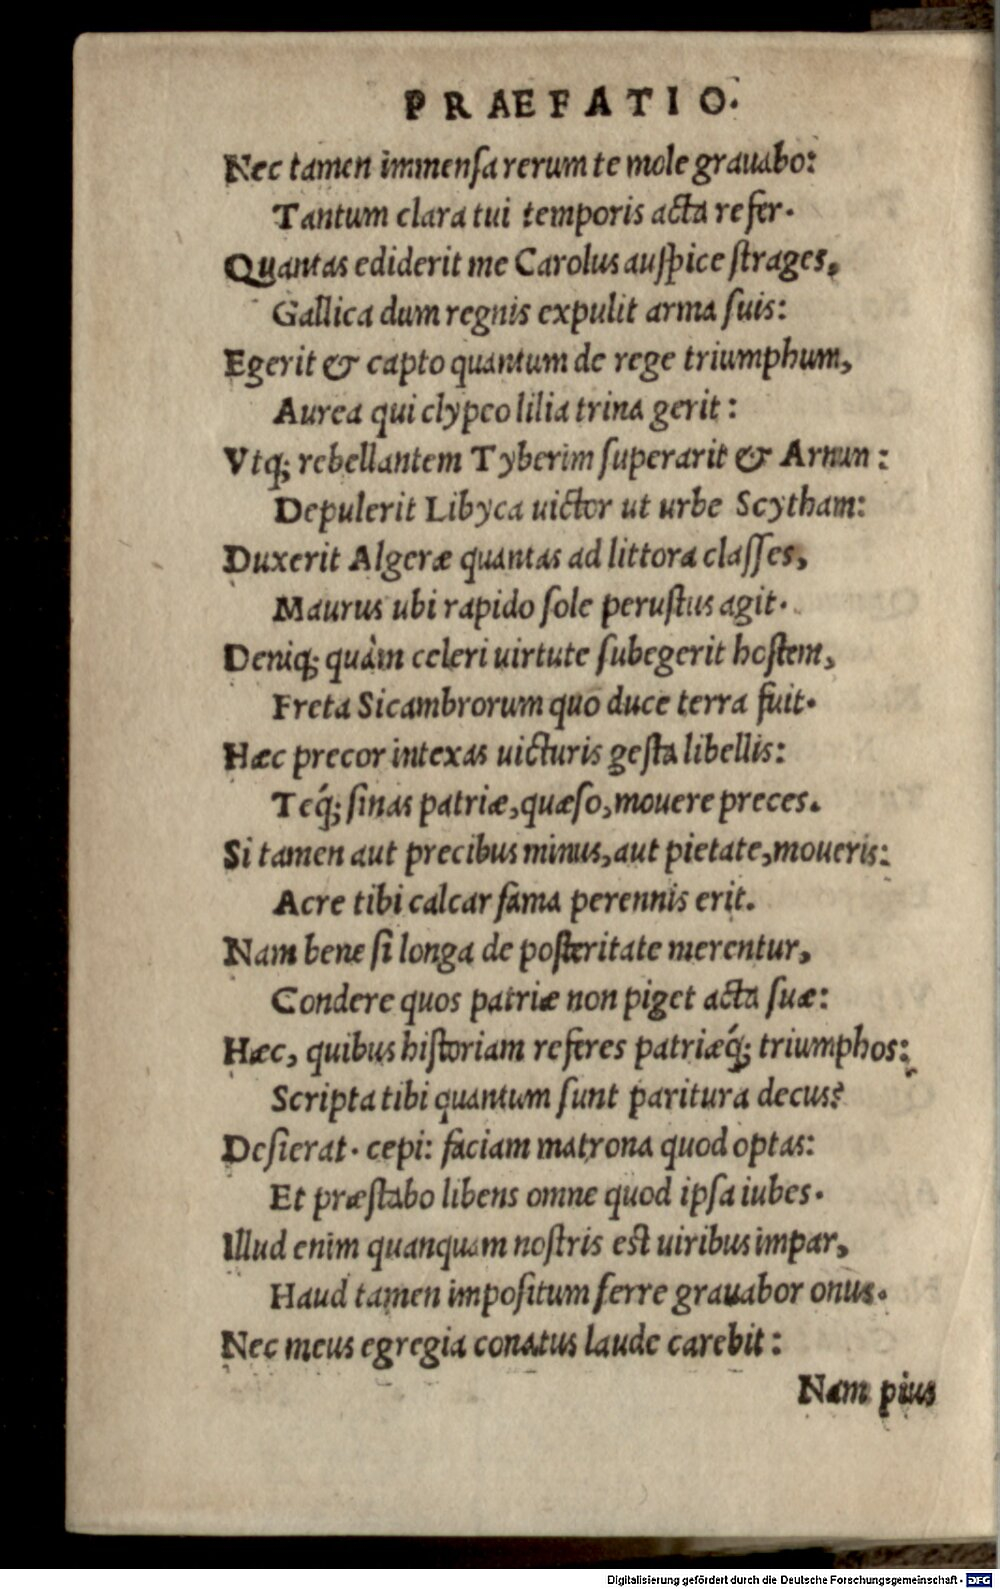 PRAEFATIO.
Nec tamen immensa rerum te mole grauabo:
Tantum clara tui temporis acta refer.
Quantas ediderit me Carolus auspice strages,
Gallica dum regnis expulit arma suis:
Egerit & capto quantum de rege triumphum,
Aurea qui clypeo lilia trina gerit:
Vtq; rebellantem Tyberim superarit & Arnum:
Depulerit Libyca uictor ut urbe Scytham:
Duxerit Algeræ quantas ad littora classes,
Maurus ubi rapido sole perustus agit.
Deniq; quàm celeri uirtute subegerit hostem,
Freta Sicambrorum quo duce terra fuit.
Hæc precor intexas uicturis gesta libellis:
Teq́; sinas patriæ, quæso, mouere preces.
Si tamen aut precibus minus, aut pietate, moueris:
Acre tibi calcar fama perennis erit.
Nam bene si longa de posteritate merentur,
Condere quos patriæ non piget acta suæ:
Hæc, quibus historiam referes patriæq́; triumphos:
Scripta tibi quantum sunt paritura decus?
Desierat. cepi: faciam matrona quod optas:
Et præstabo libens omne quod ipsa iubes.
Illud enim quanquam nostris est uiribus impar,
Haud tamen impositum ferre grauabor onus.
Nec meus egregia conatus laude carebit:
Nam pius
Digitalisierung gefördert durch die Deutsche Forschungsgemeinschaft - DFG